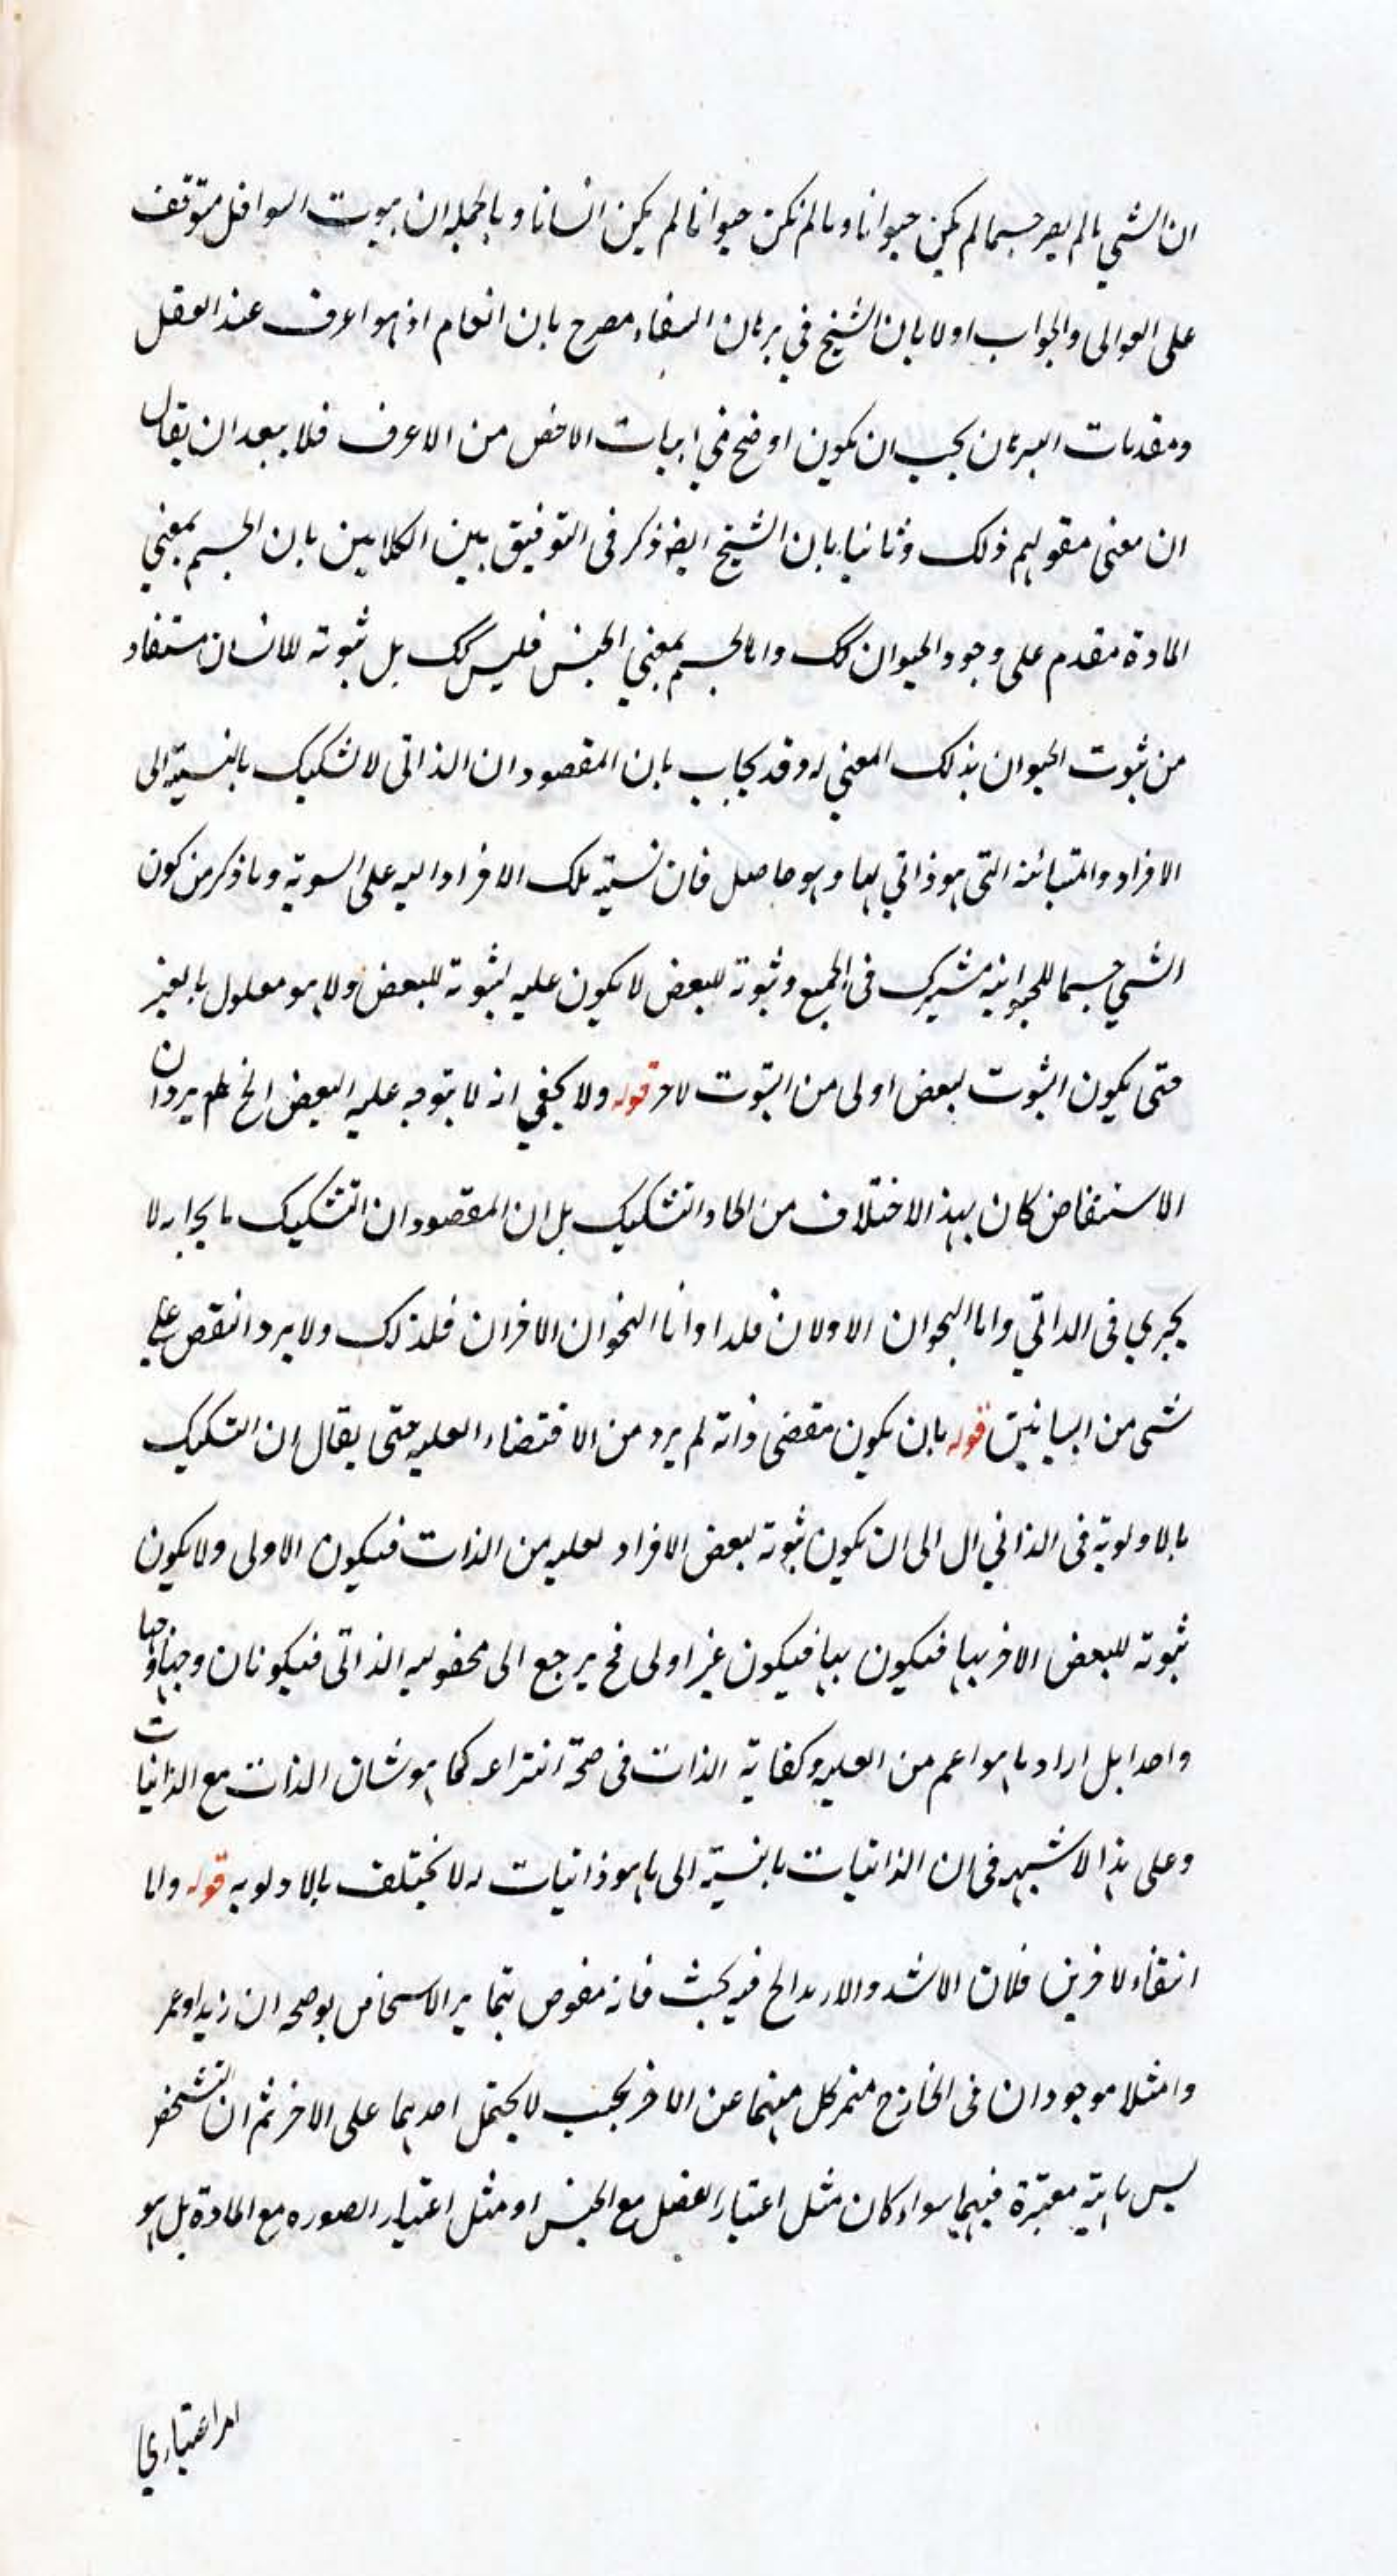 ان الشي ما لم يصر جسما لم يكن حيوانا وما لم تكن حيوانا لم يكن انسانا وبالجمله ان ثبوت السوافل متوقف
على العوالى والجواب اولا بان الشيخ في برهان الشفاء مصرح بان العام اذ هو اعرف عند العقل
ومقدمات البرهان يجب ان يكون اوضح في اثبات الاخص من الاعرف فلا يبعد ان يقال
ان معنى مقولهم ذلك وثانيا بان الشيخ ايضا ذكر فى التوفيق بين الكلامين بان الجسم بمعني
المادة مقدم على وجود الحيوان كك واما الجسم بمعني الجنس فليس كك بل ثبوته للانسان مستفاد
من ثبوت الحيوان بذلك المعني له وقد يجاب بان المقصود ان الذاتى لا تشكيك بالنسبة الى
الافراد والمتبائنه التى هو ذاتي لها وهو حاصل فان نسبته تلك الافراد اليه على السوية وما ذكر من كون
الشي جسما للحيوانيه مشترك فى الجميع وثبوته للبعض لا يكون عليه لثبوته للبعض ولا هو معلول بالغير
حتى يكون الثبوت لبعض اولى من الثبوت لاخر قوله ولا يخفي انه لا يتوجه عليه البعض الخ لم يرد ان
الاستنقاض كان بهذا الاختلاف من انحاء التشكيك بل ان المقصود ان التشكيك بايجابه لا
يجري فى الذاتي واما النحوان الاولان فلذا واما النحوان الاخران فلذلك ولا يرد النقض على
شى من البيانين قوله بان يكون مقتضى ذاته لم يرد من الاقتضاء العليه حتى يقال ان التشكيك
بالاولوية فى الذاتي ال الى ان يكون ثبوته لبعض الافراد لعليه من الذات فيكون الاولى ولا يكون
ثبوته للبعض الاخر بها فيكون بها فيكون غير اولى فح يرجع الى مجعوليه الذاتى فيكونان وجها
واحدا بل اراد ما هو اعم من العليه وكفاية الذات فى صحة انتزاعه كما هو شان الذات مع الذاتيات
وعلى هذا لا شبهه فى ان الذاتيات بالنسبة الى ما هو ذاتيات له لا يختلف بالاولويه قوله واما
انتفاء لاخرين فلان الاشد والازيد الخ فيه بحث فانه منقوض بتمايز الاشخاص يوضحه ان زيدا وعمر
وامثلا موجودان فى الخارج متميز كل منهما عن الاخر بحيث لا يحتمل احديهما على الاخر ثم ان التشخص
ليس ماهية معتبرة فيهما سواء كان مثل اعتبار الفصل مع الجنس او مثل اعتبار الصوره مع المادة بل هو
امر اعتباري